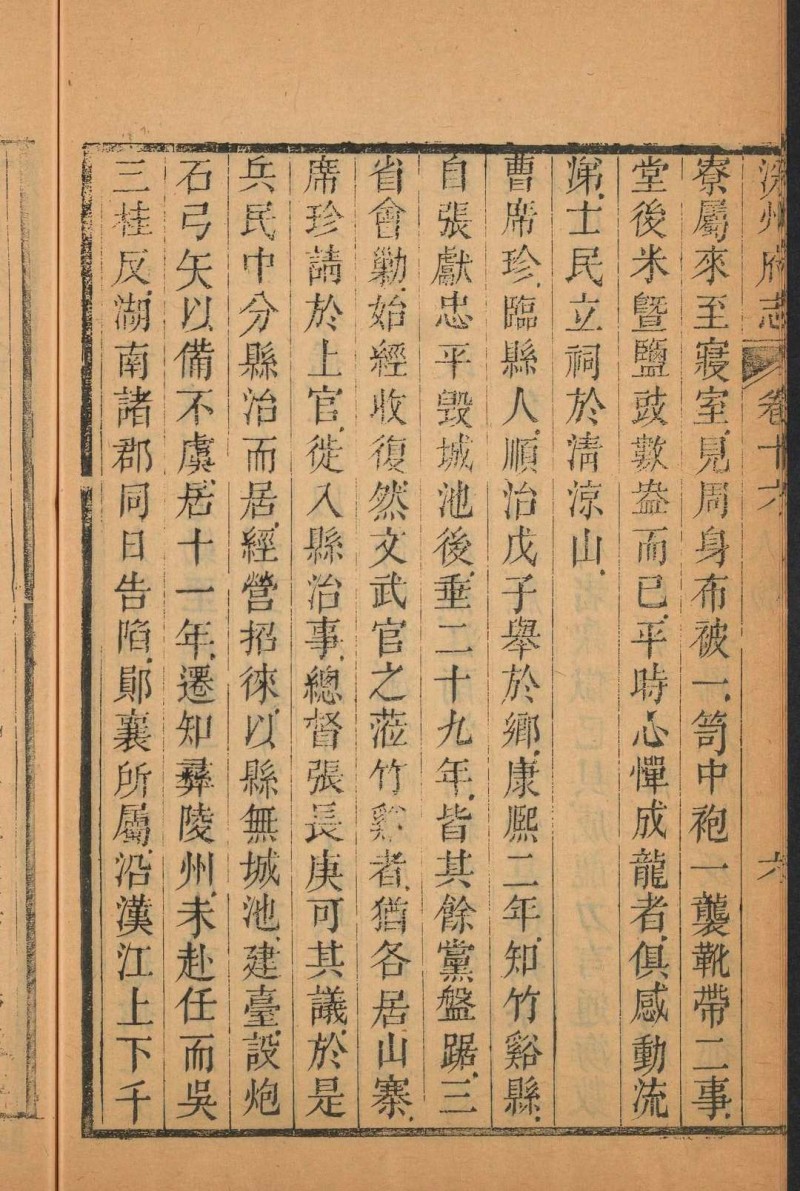 汾州府志 卷十六 六
寮屬來至寢室見周身布被一笥中袍一襲靴帶二事
堂後米曁鹽豉數盎而已平時心憚成龍者俱感動流
涕士民立祠於淸涼山
曹席珍臨縣人順治戊子舉於鄉康熙二年知竹谿縣
自張獻忠平毀城池後垂二十九年皆其餘黨盤踞三
省會勦始經收復然文武官之蒞竹谿者猶各居山寨
席珍請於上官徙入縣治事總督張長庚可其議於是
兵民中分縣治而居經營招徠以縣無城池建臺設炮
石弓矢以備不虞居十一年遷知彞陵州未赴任而吳
三桂反湖南諸郡同日告陷鄖襄所屬沿漢江上下千